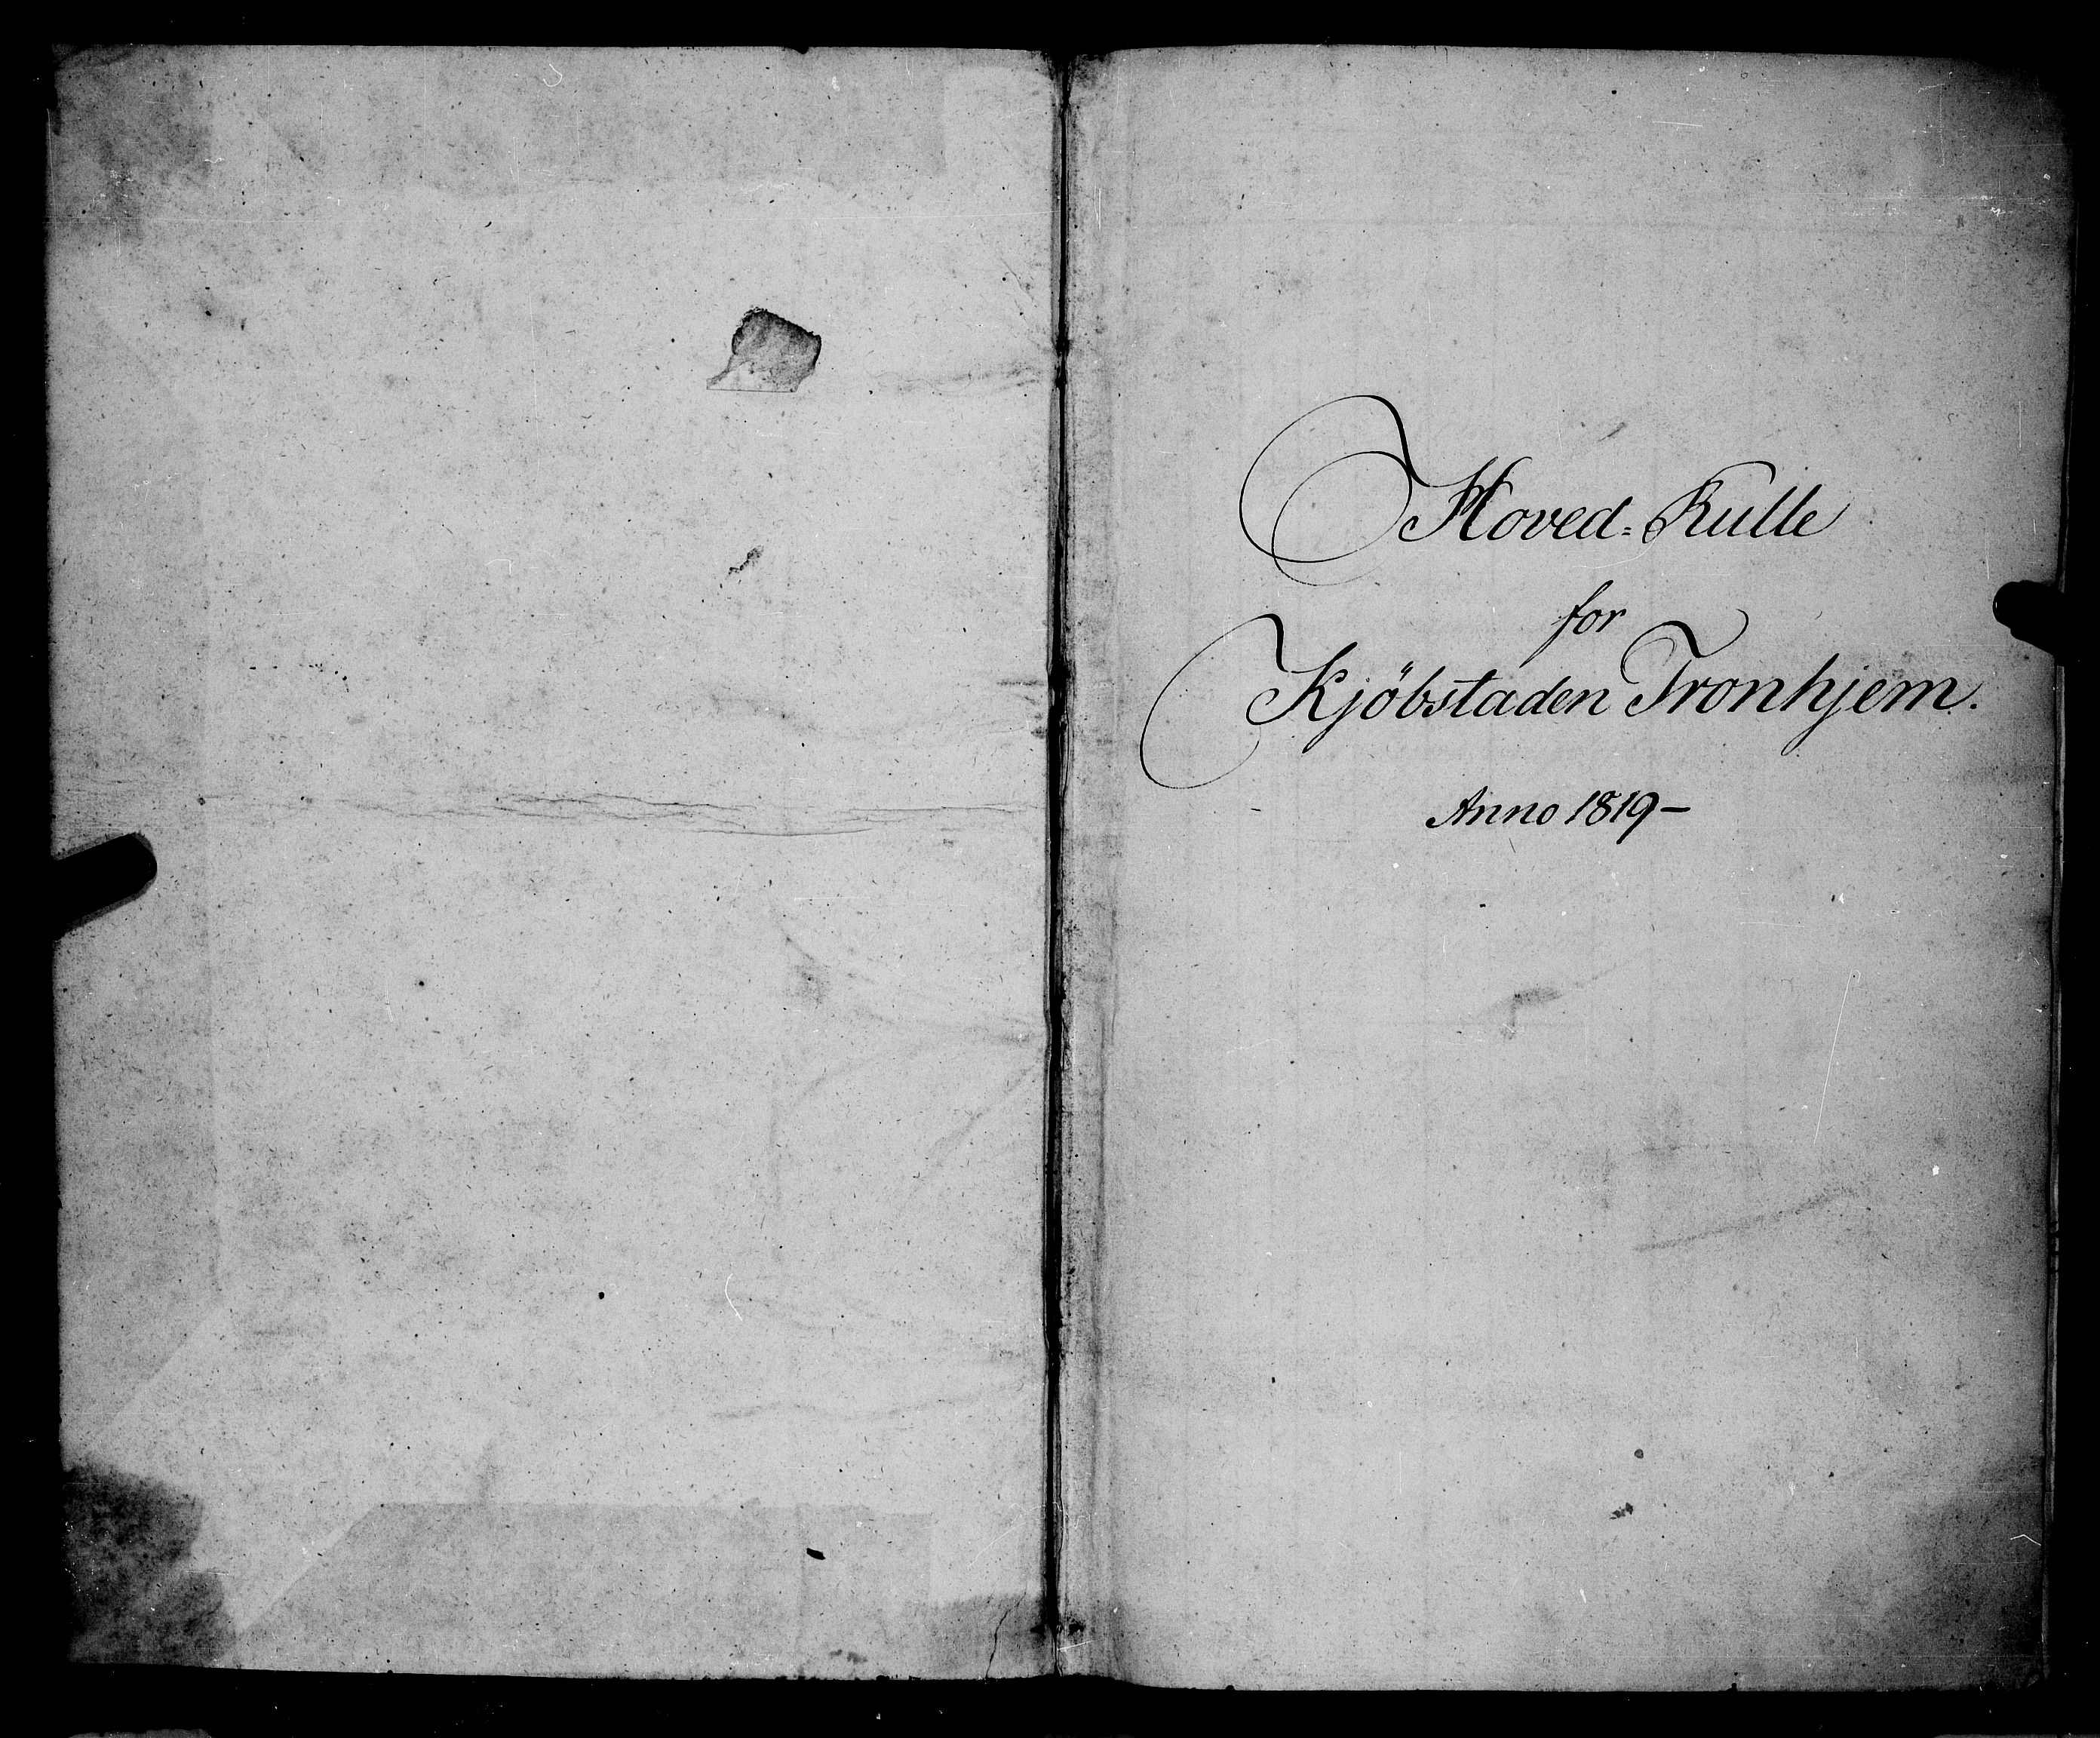 Hoved=Rulle
for
Kjöbstaden Tronhjem.
Anno 1819–